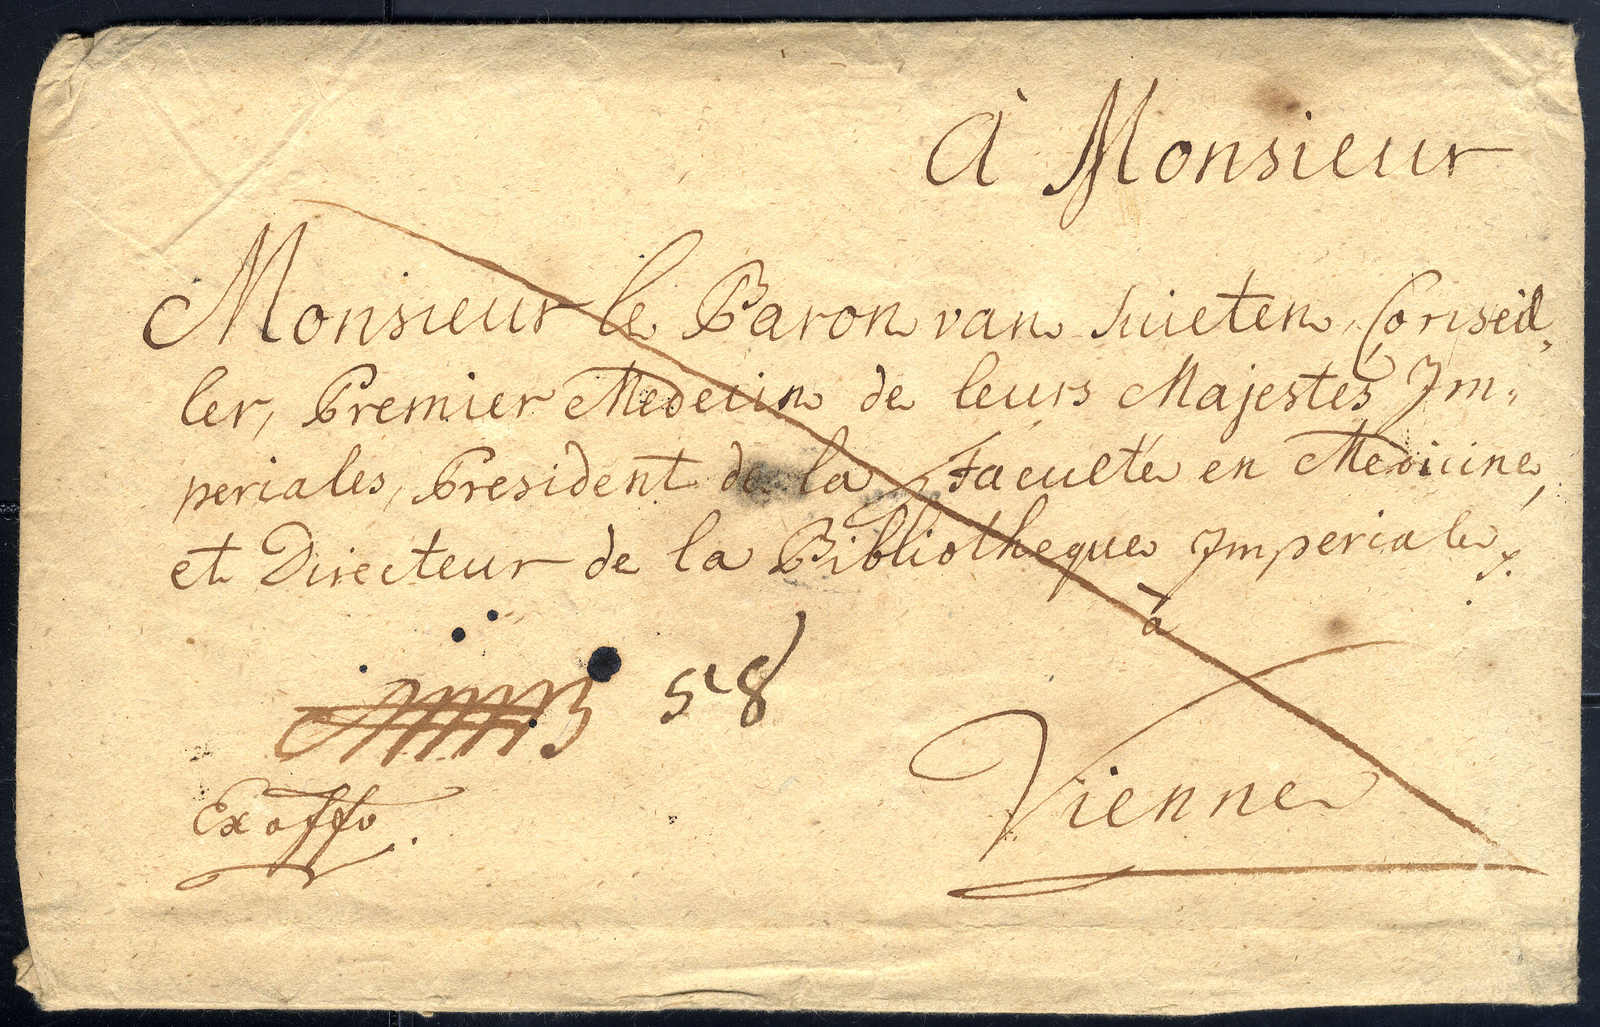 à Monsieur
Monsieur le Baron van Suieten, Conseil„
ler, Premier Medecin de leurs Majestés Im„
periales, President de la Faculté en Medicine,
et Directeur de la Bibliotheque Imperiale,
à
58
Vienne
Ex offo.